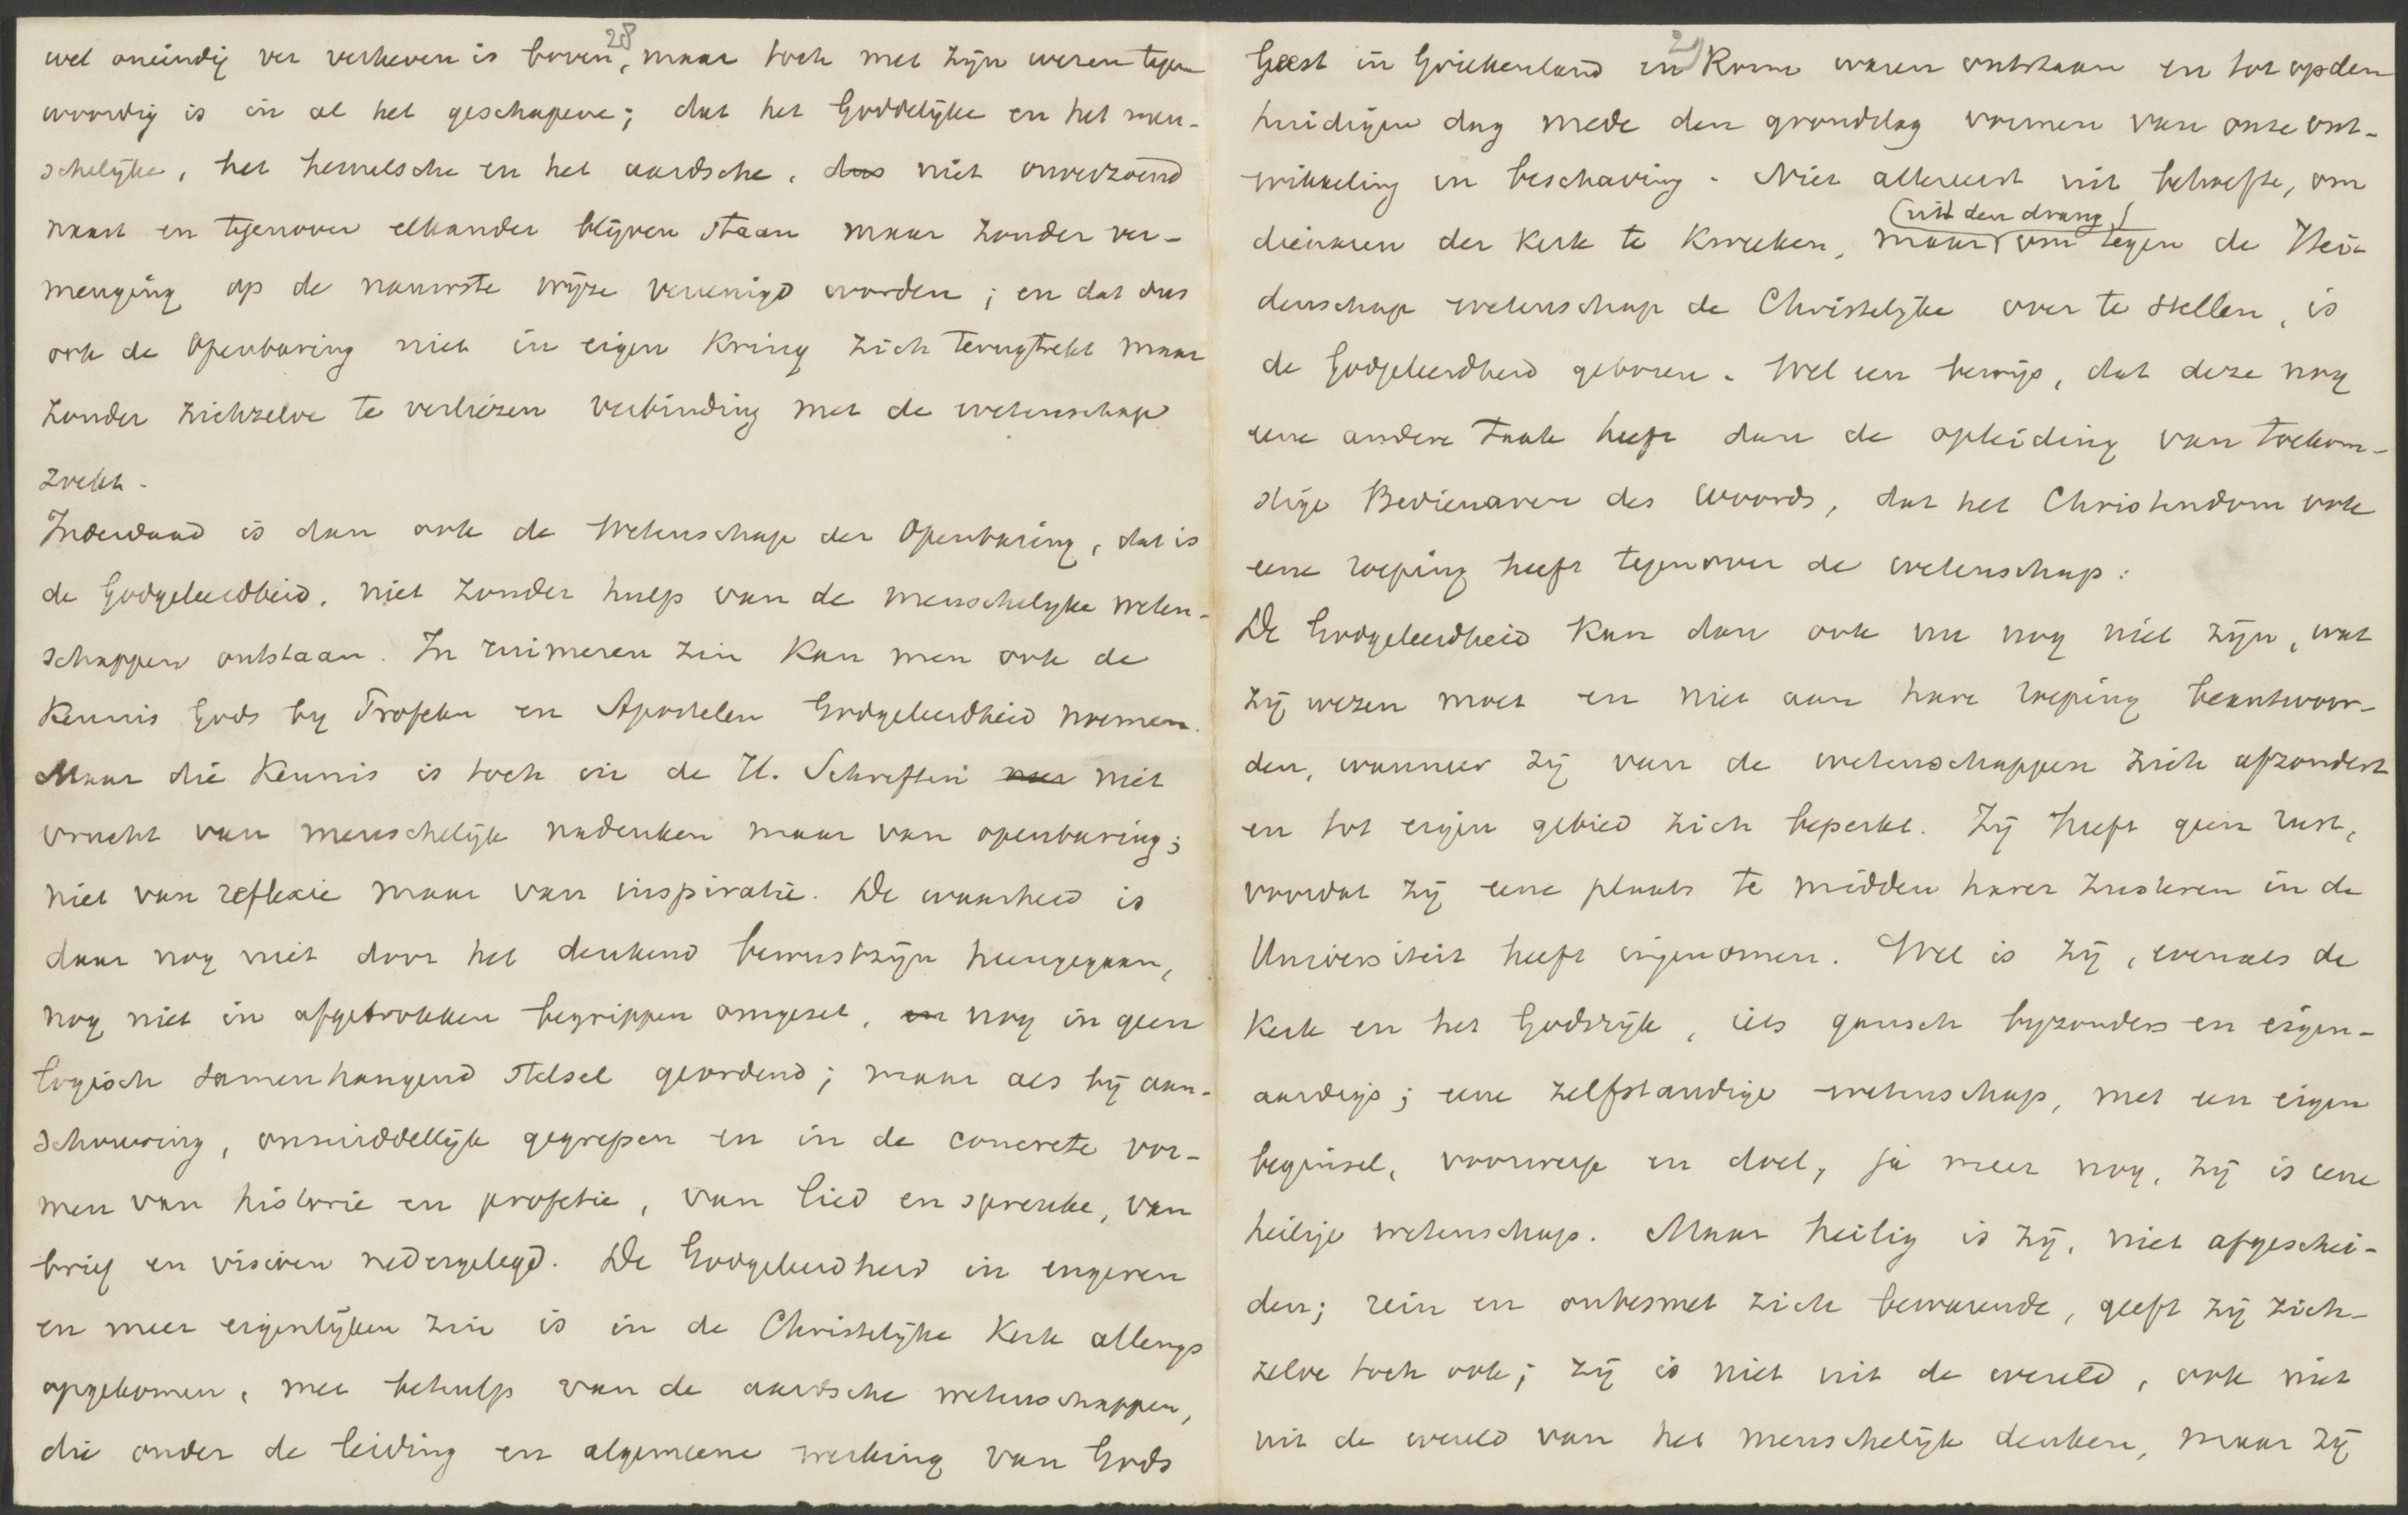 28
wel oneindig ver verheven is boven, maar toch met zijn wezen tegen
woordig is in al het geschapene; dat het Goddelijke en het men-
schelijke, het hemelsche en het aardsche, dus niet onverzoend
naast en tegenover elkander blijven staan maar zonder ver-
menging op de nauwste wijze vereenigd worden; en dat dus
ook de Openbaring niet in eigen kring zich terugtrekt maar
zonder zichzelve te verliezen verbinding met de wetenschap
zoekt.
Inderdaad is dan ook de Wetenschap der Openbaring, dat is
de Godgeleerdheid, niet zonder hulp van de menschelijke weten-
schappen ontstaan. In ruimeren zin kan men ook de
Kennis Gods by Profeten en Apostelen Godgeleerdheid noemen.
Maar die Kennis is toch in de H. Schriften niet
vrucht van menschelijk nadenken maar van openbaring;
niet van reflexie maar van inspiratie. De waarheid is
daar nog niet door het denkend bewustzijn heengegaan,
nog niet in afgetrokken begrippen omgezet, en nog in geen
logisch samenhangend stelsel geordend; maar als bij aan-
schouwing, onmiddellijk gegrepen en in de concrete vor-
men van historie en profetie, van lied en spreuke, van
brief en visioen nedergelegd. De Godgeleerdheid in engeren
en meer eigenlijken zin is in de Christelijke Kerk allengs
opgekomen, met behulp van de aardsche wetenschappen,
die onder de leiding en algemeene werking van Gods
29
Geest in Griekenland en Rome waren ontstaan en tot op den
huidigen dag mede den grondslag vormen van onze ont-
wikkeling en beschaving. Niet allereerst uit behoefte, om
(uit den drang)
dienaren der Kerk te kweeken, maar om tegen de Hei-
denschap wetenschap de Christelijke over te stellen, is
de Godgeleerdheid geboren. Wel een bewijs, dat deze nog
eene andere taak heeft dan de opleiding van toekom-
stige Bedienaren des Woords, dat het Christendom ook
eene roeping heeft tegenover de wetenschap:
De Godgeleerdheid kan dan ook nu nog niet zijn, wat
zij wezen moet en niet aan hare roeping beantwoor-
den, wanneer zij van de wetenschappen zich afzondert
en tot eigen gebied zich beperkt. Zij heeft geen rust,
voordat zij eene plaats te midden harer zusteren in de
Universiteit heeft ingenomen. Wel is zij, evenals de
Kerk en het Godsrijk, iets gansch byzonders en eigen-
aardigs; eene zelfstandige wetenschap, met een eigen
beginsel, voorwerp en doel, ja meer nog, zij is eene
heilige wetenschap. Maar heilig is zij, niet afgeschei-
den; rein en onbesmet zich bewarende, geeft zij zich-
zelve toch ook; zij is niet uit de wereld, ook niet
uit de wereld van het menschelijk denken, maar zij